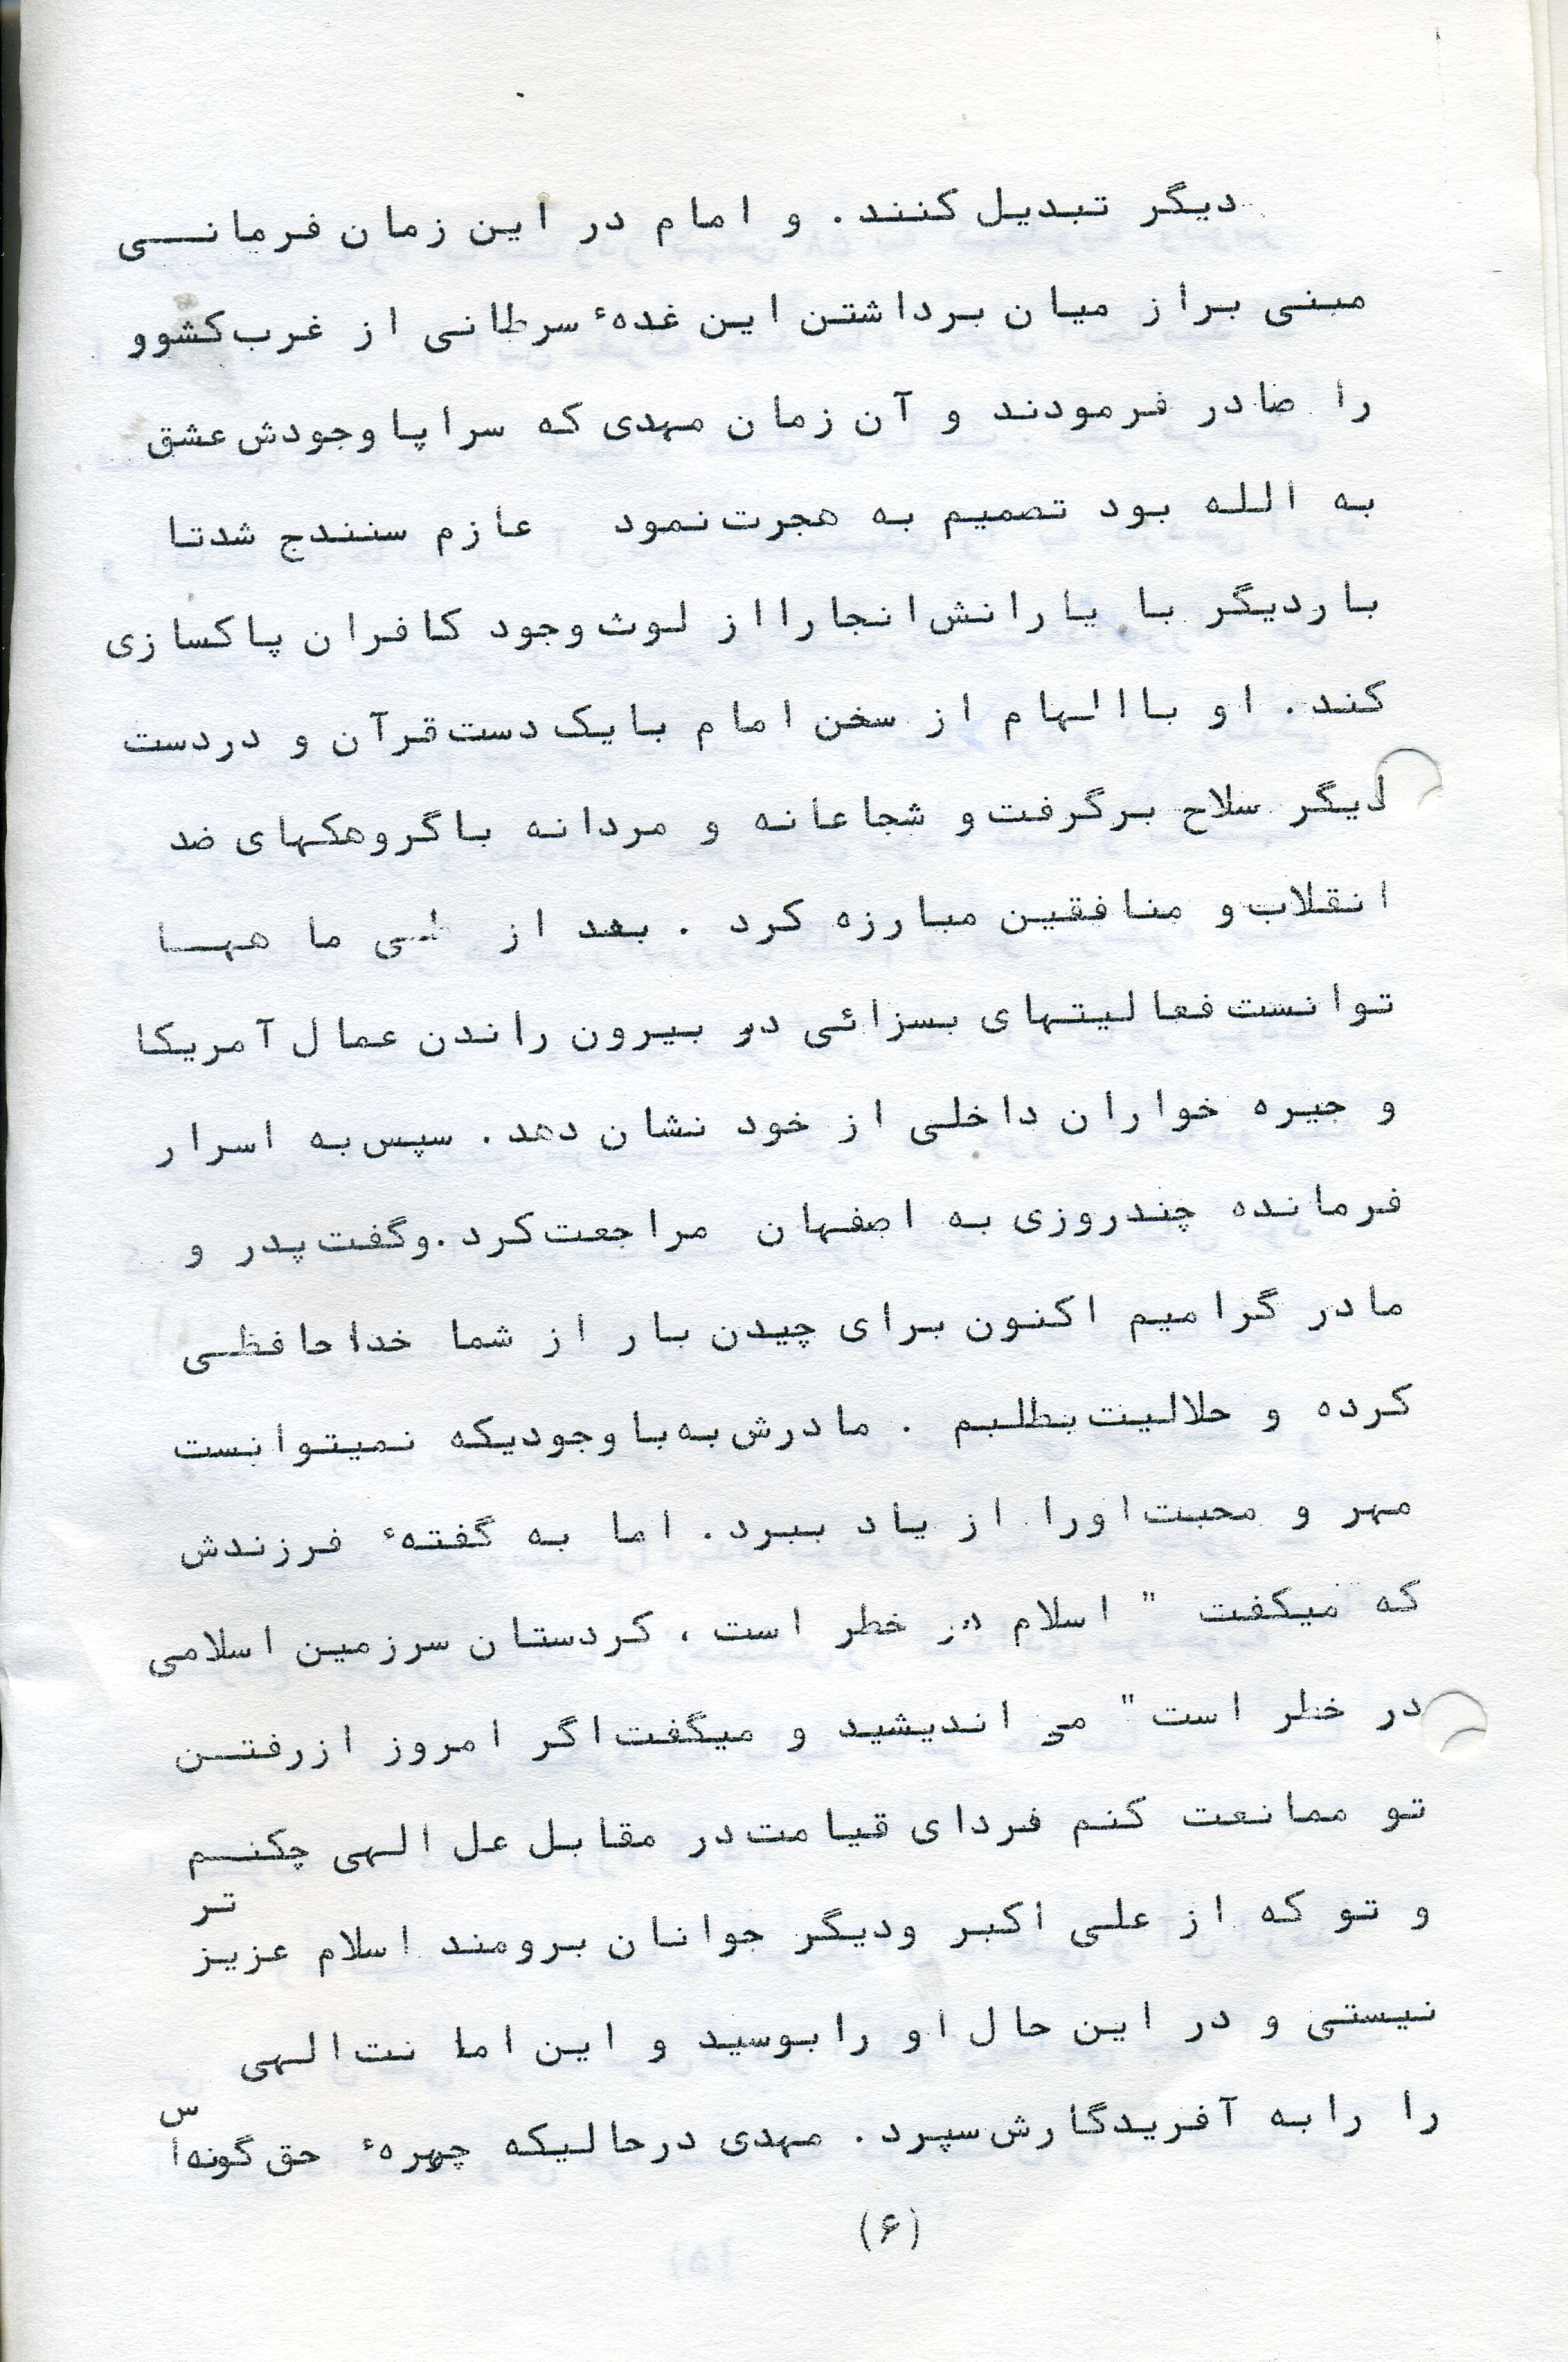 دیگر تبدیل کنند. و امام در این زمان فرمانی
مبنی براز میان برداشتن این غدهٔ سرطانی از غرب کشوو
را صادر فرمودند و آن زمان مهدی که سراپا وجودش عشق
به الله بود تصمیم به هجرت نمود عازم سنندج شدتا
باردیگر با یارانش انجارااز لوث وجود کافران پاکسازی
کند. او باالهام از سخن امام بایک دست قرآن و دردست
دیگر سلاح برگرفت و شجاعانه و مردانه باگروهکهای ضد
انقلاب و منافقین مبارزه کرد . بعد از طی ما هها
توانست فعالیتهای بسزائی در بیرون راندن عمال آمریکا
و جیره خواران داخلی از خود نشان دهد. سپس به اسرار
فرمانده چندروزی به اصفهان مراجعت کرد.وگفت پدر و
مادر گرامیم اکنون برای چیدن بار از شما خداحافظی
کرده و حلالیت بطلبم . مادرش به با وجودیکه نمیتوانست
مهر و محبت اورا از یاد ببرد. اما به گفتهٔ فرزندش
که میکفت " اسلام در خطر است ، کردستان سرزمین اسلامی
در خطر است" می اندیشید و میگفت اگر امروز ازرفتن
تو ممانعت کنم فردای قیامت در مقابل عل الهی چکنم
و تو که از علی اکبر ودیگر جوانان برومند اسلام عزیز تر
نیستی و در این حال او رابوسید و این اما نت الهی
را رابه آفریدگارش سپرد. مهدی درحالیکه چهرهٔ حق گونه اس
(۶)